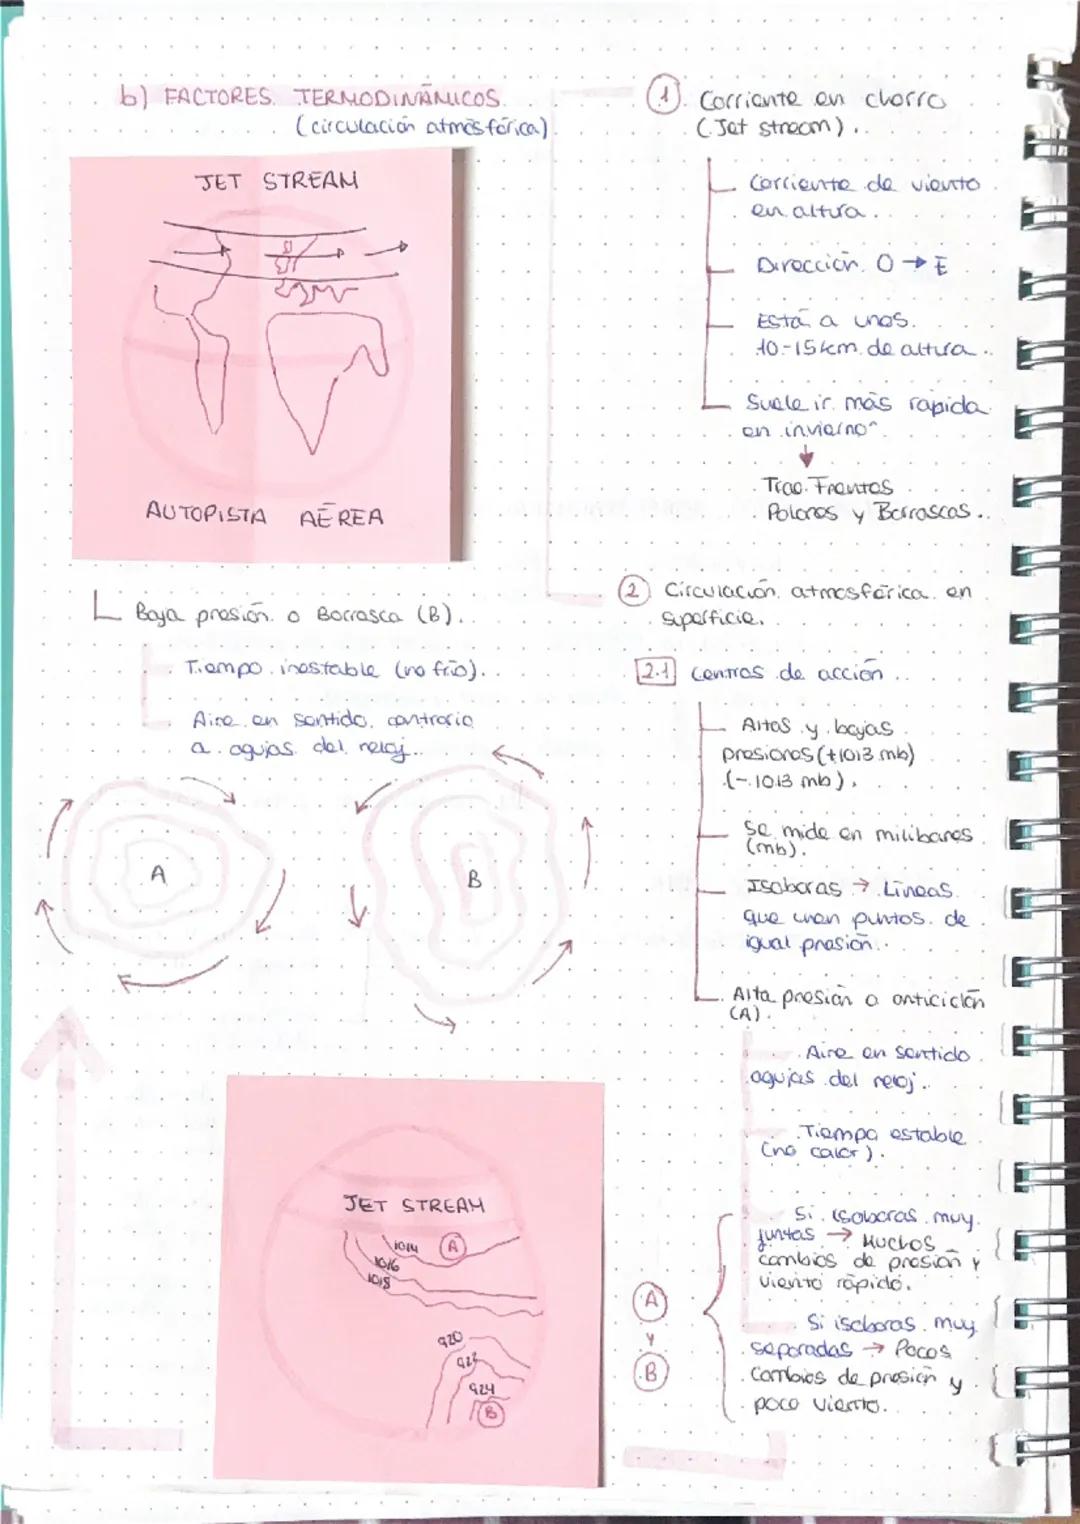 b) FACTORES TERMODINÁMICOS
(circulación atmosférica)
JET STREAM
AUTOPISTA AÉREA
1 Corriente en chorro
(Jet stream).
Corriente de viento
en altura.
Dirección O → E
Está a unos
10-15 km de altura.
Suele ir más rápida
en invierno
Trae Frentes
Polares y Borrascas.
2 Circulación atmosférica en
superficie.
2.1 Centros de acción.
Altas y bajas
presiones (+1013 mb)
(-1013 mb).
Se mide en milibares
(mb).
Isobaras → Líneas
que unen puntos de
igual presión.
Alta presión o anticiclón
(A).
Aire en sentido
agujas del reloj.
Tiempo estable
(no calor).
Baja presión o Borrasca (B).
Tiempo inestable (no frío).
Aire en sentido contrario
a agujas del reloj.
A
B
JET STREAM
1014
A
1016
1018
920
922
924
B
A
y
B
Si isobaras muy
juntas → Muchos
cambios de presión y
viento rápido.
Si isobaras muy
separadas → Pocos
cambios de presión y
poco viento.